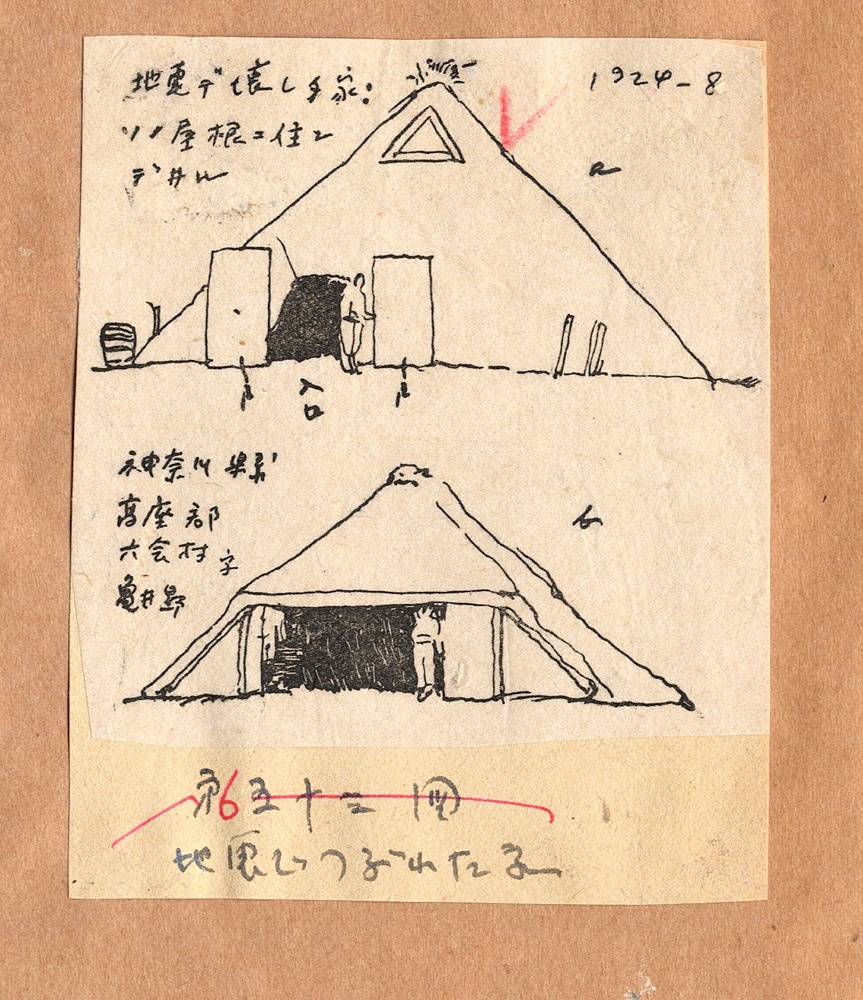 地震デ壊レタ家:
ソノ屋根ニ住ン
デ井ル
1924-8
a
戸
入口
戸
神奈川縣
高座郡
六会村字
亀井野
b
第五十三図
6
地震でつぶれた家